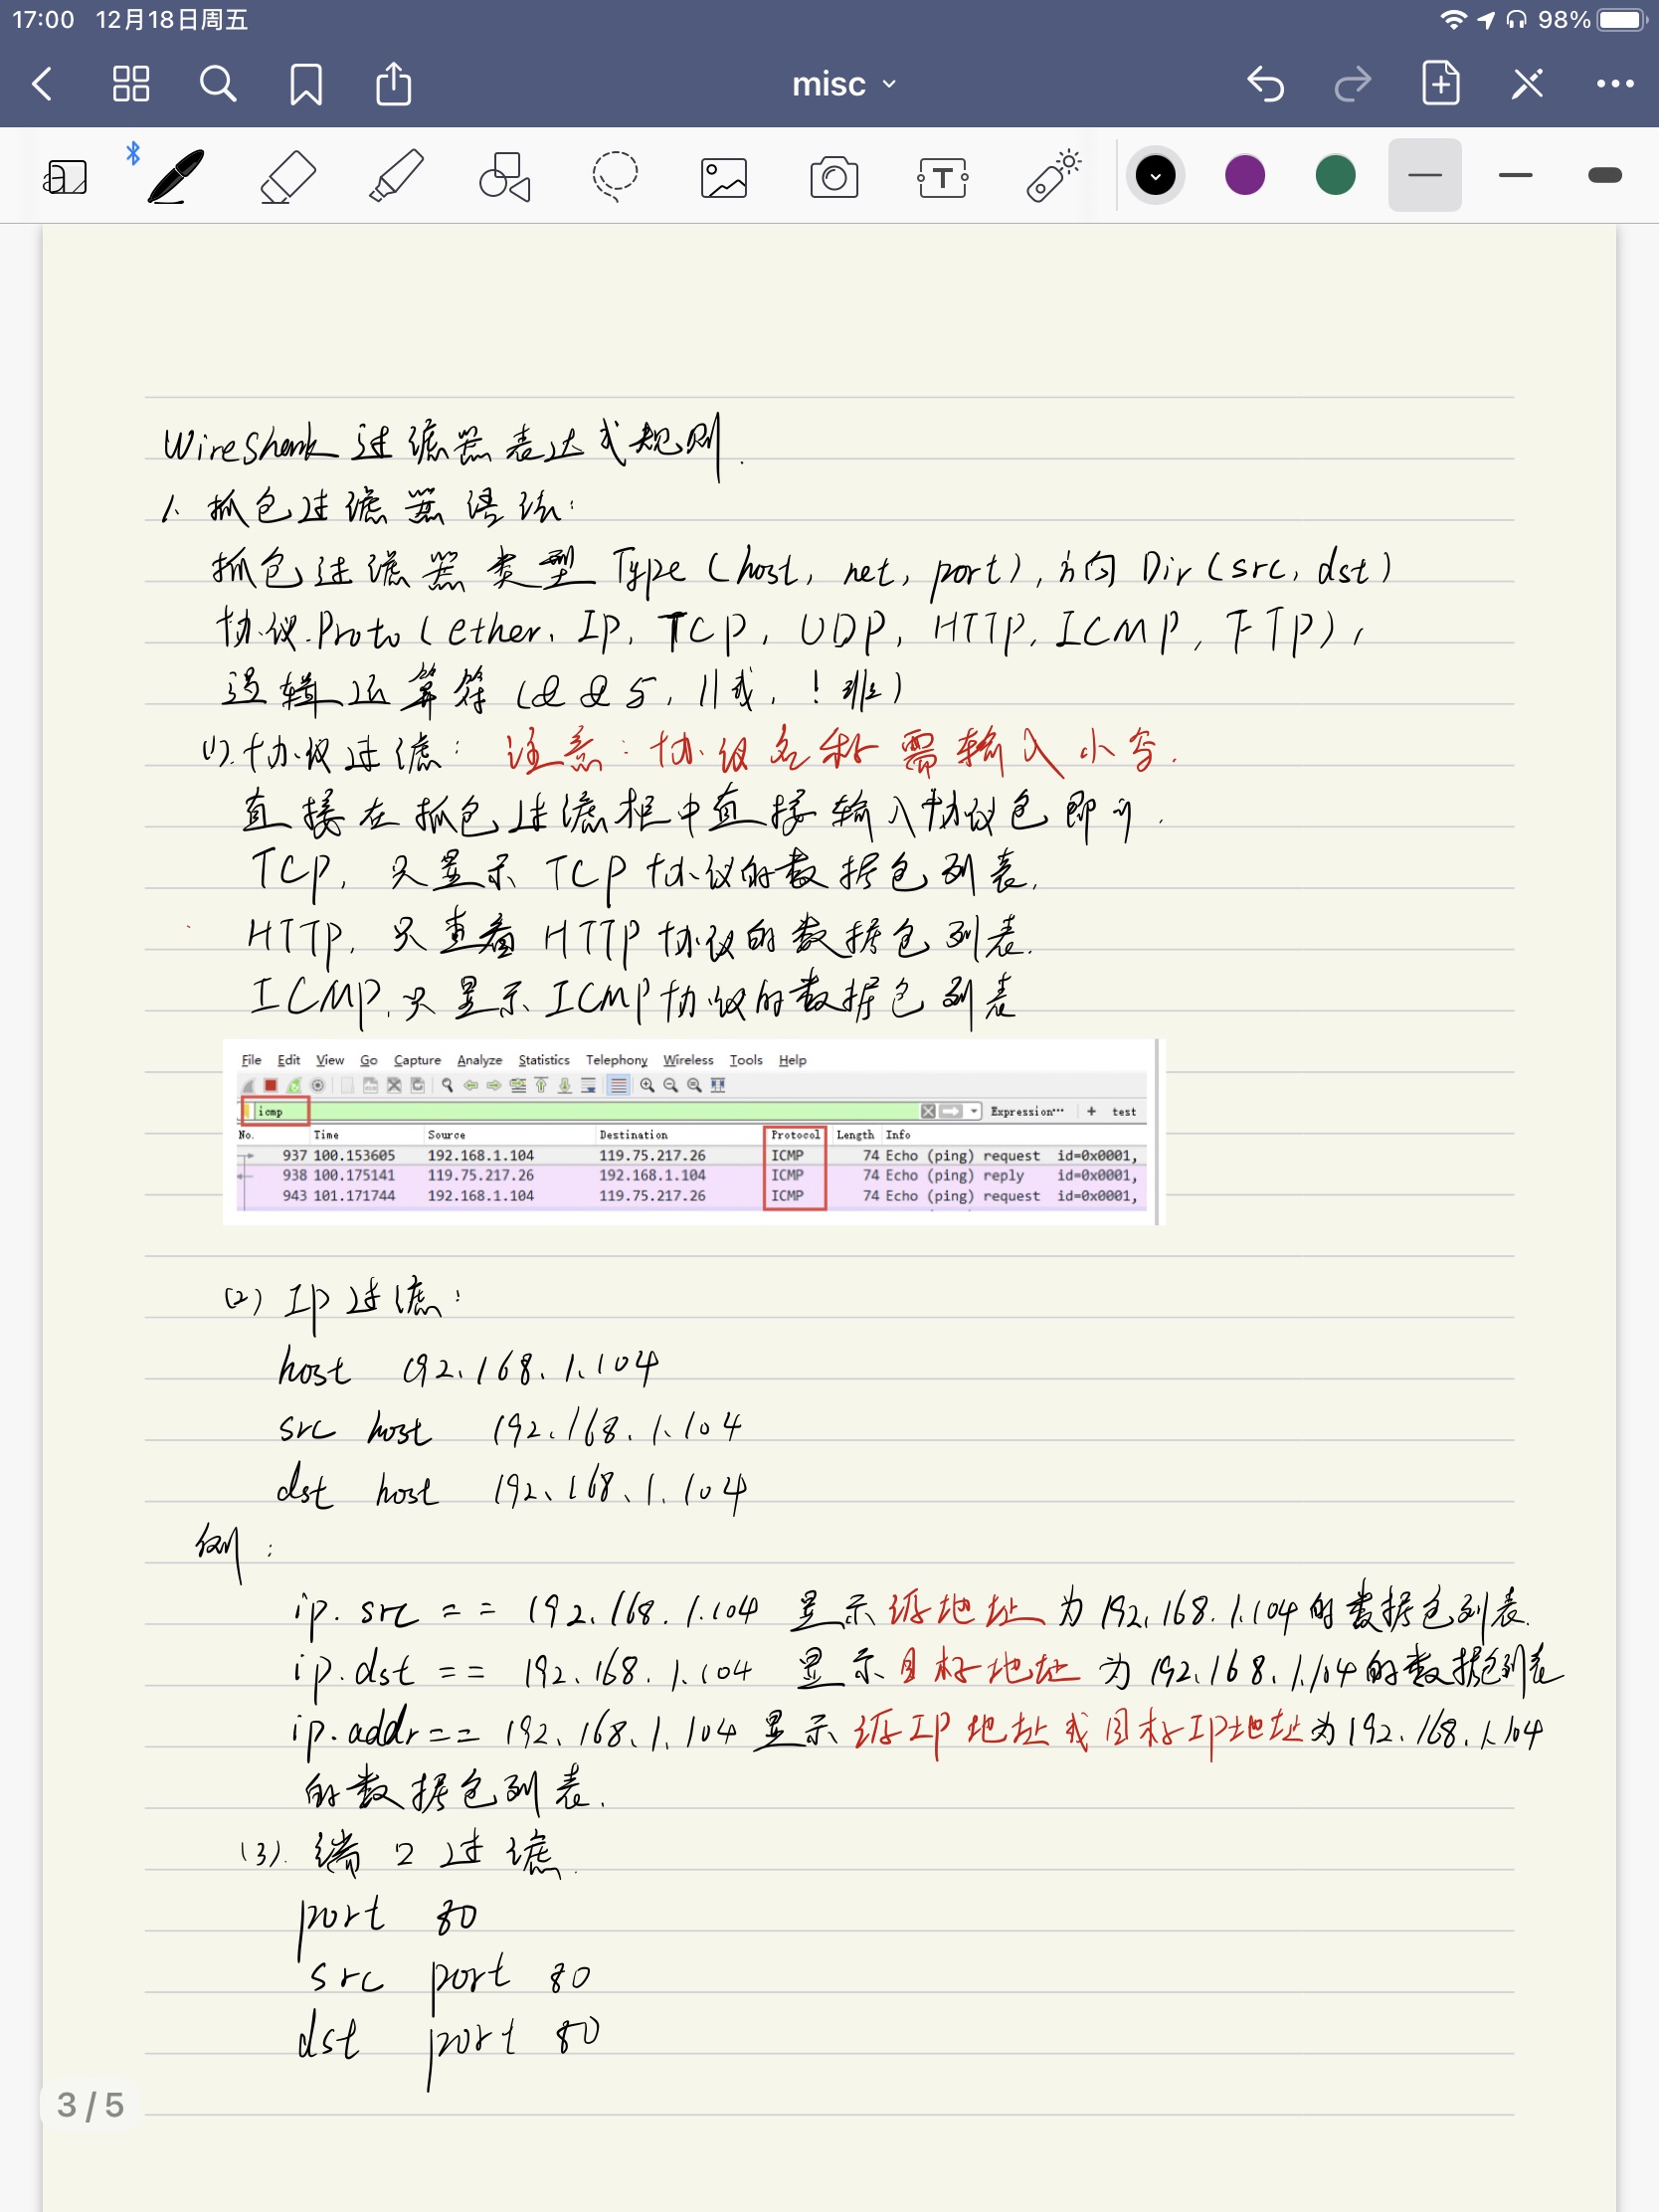 17:00 12月18日周五 98%
misc
WireShark 过滤器表达式规则.
1. 抓包过滤器语法:
抓包过滤器类型 Type (host, net, port), 方向 Dir (src, dst)
协议.Proto (ether, IP, TCP, UDP, HTTP, ICMP, FTP),
逻辑运算符 (&&与, ||或, !非)
(1).协议过滤: 注意:协议名称需输入小写.
直接在抓包过滤框中直接输入协议包即可.
TCP, 只显示 TCP 协议的数据包列表.
HTTP, 只查看 HTTP 协议的数据包列表.
ICMP, 只显示 ICMP 协议的数据包列表
File Edit View Go Capture Analyze Statistics Telephony Wireless Tools Help
icmp Expression… + test
No. Time Source Destination Protocol Length Info
937 100.153605 192.168.1.104 119.75.217.26 ICMP 74 Echo (ping) request id=0x0001,
938 100.175141 119.75.217.26 192.168.1.104 ICMP 74 Echo (ping) reply id=0x0001,
943 101.171744 192.168.1.104 119.75.217.26 ICMP 74 Echo (ping) request id=0x0001,
(2) IP 过滤:
host 192.168.1.104
src host 192.168.1.104
dst host 192.168.1.104
例:
ip.src == 192.168.1.104 显示源地址为 192.168.1.104 的数据包列表.
ip.dst == 192.168.1.104 显示目标地址为 192.168.1.104 的数据包列表
ip.addr == 192.168.1.104 显示源IP地址或目标IP地址为 192.168.1.104
的数据包列表.
(3). 端口过滤.
port 80
src port 80
dst port 80
3 / 5